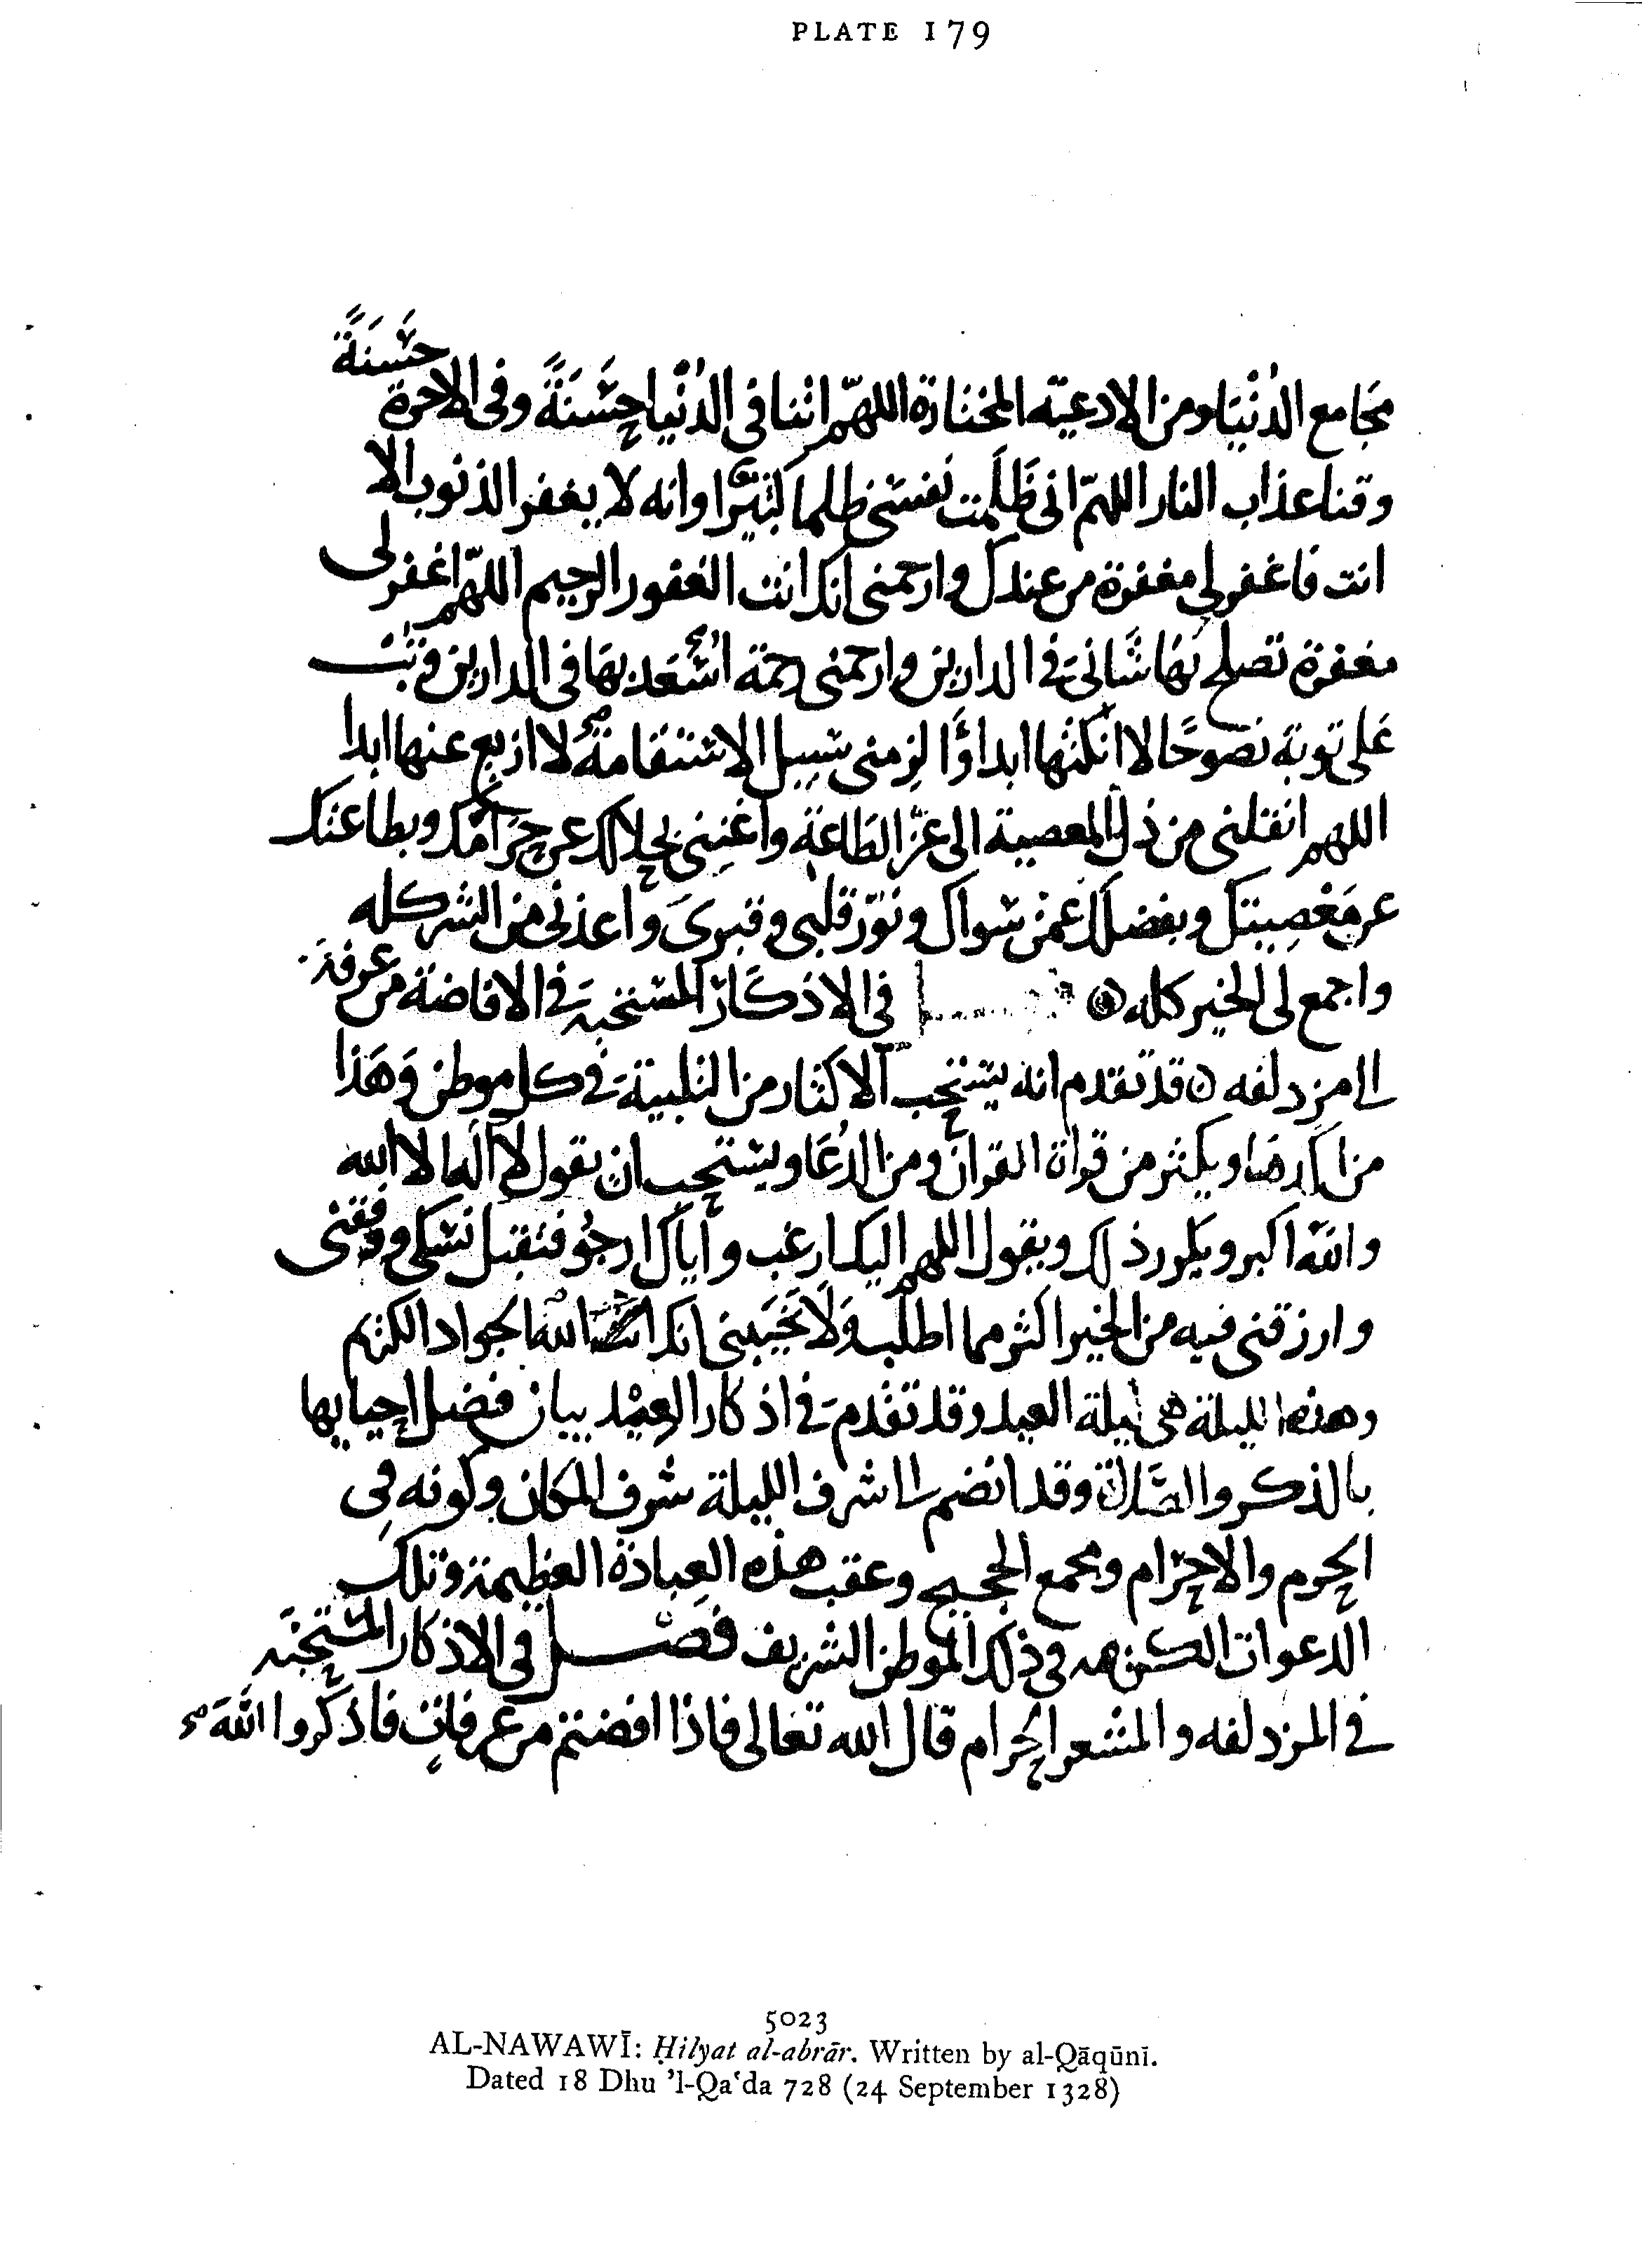 PLATE 179
مجامع الدُّنْيَا ومن الادعية المختارة اللهمّ اتنا في الدُنْيا حَسَنَةً وفي الاخرة حَسَنَةً
وقنا عذاب النار اللهمّ اني ظَلَمت نفسي ظلما كثيرًا وانه لا يغفر الذنوب الا
انت فاغفر لي مغفرة من عندك وارحمني انك انت الغفور الرحيم اللهمّ اغفر لي
مغفرة تصلح بهَا شَاني في الدارين وارحمني رحمة اسعَد بهَا في الدارين وتب
عَلى توبة نصوحًا لا انكثها ابدا وَالزمني سبيل الاستقامة لا ازيغ عنها ابدا
اللهم انقلني من ذل المعصية الى عزّ الطَاعَة واغنِني بحلالك عن حَرَامك وبطاعتك
عن مَعْصِيتك وبفضلك عمن سواك ونوّر قلبي وقبري واعذني من الشر كله
واجمع لي الخير كله في الاذكَار المستحبة في الافاضة من عرفة
الى مزدلفه قد تقدم انه يستحب الاكثار من التلبية في كل موطن وَهَذا
من اكدهَا ويكثر من قراة القران ومن الدُعَا ويستحب ان يقول لا اله الا الله
والله اكبر ويكرر ذلك ويقول اللهم اليك ارغب واياك ارجُو فتقبل نسكي ووفقني
وارزقني فيه من الخير اكثر مما اطلب وَلَا تخَيبني انك انت اللهُ الجواد الكريم
وهذه الليلة هي ليلة العيد وقد تقدم في اذكار العِيْد بيان فضل احيايها
بالذكر والصَّلاة وقد انضم الى شرف الليلة شرف المكان وكونه في
الحرم والاحرَام ومجمع الحجيج وعقب هذه العِبادة العظيمة وتلك
الدعوات الكريمه في ذلك الموطن الشريف فصل في الاذكار المستحبَه
في المزدلفه والمشعر الحرام قال الله تعالى فاذا افضتم من عرفاتٍ فاذكروا اللهَ
5023
AL-NAWAWĪ: Ḥilyat al-abrār. Written by al-Qāqūnī.
Dated 18 Dhu 'l-Qa‘da 728 (24 September 1328)